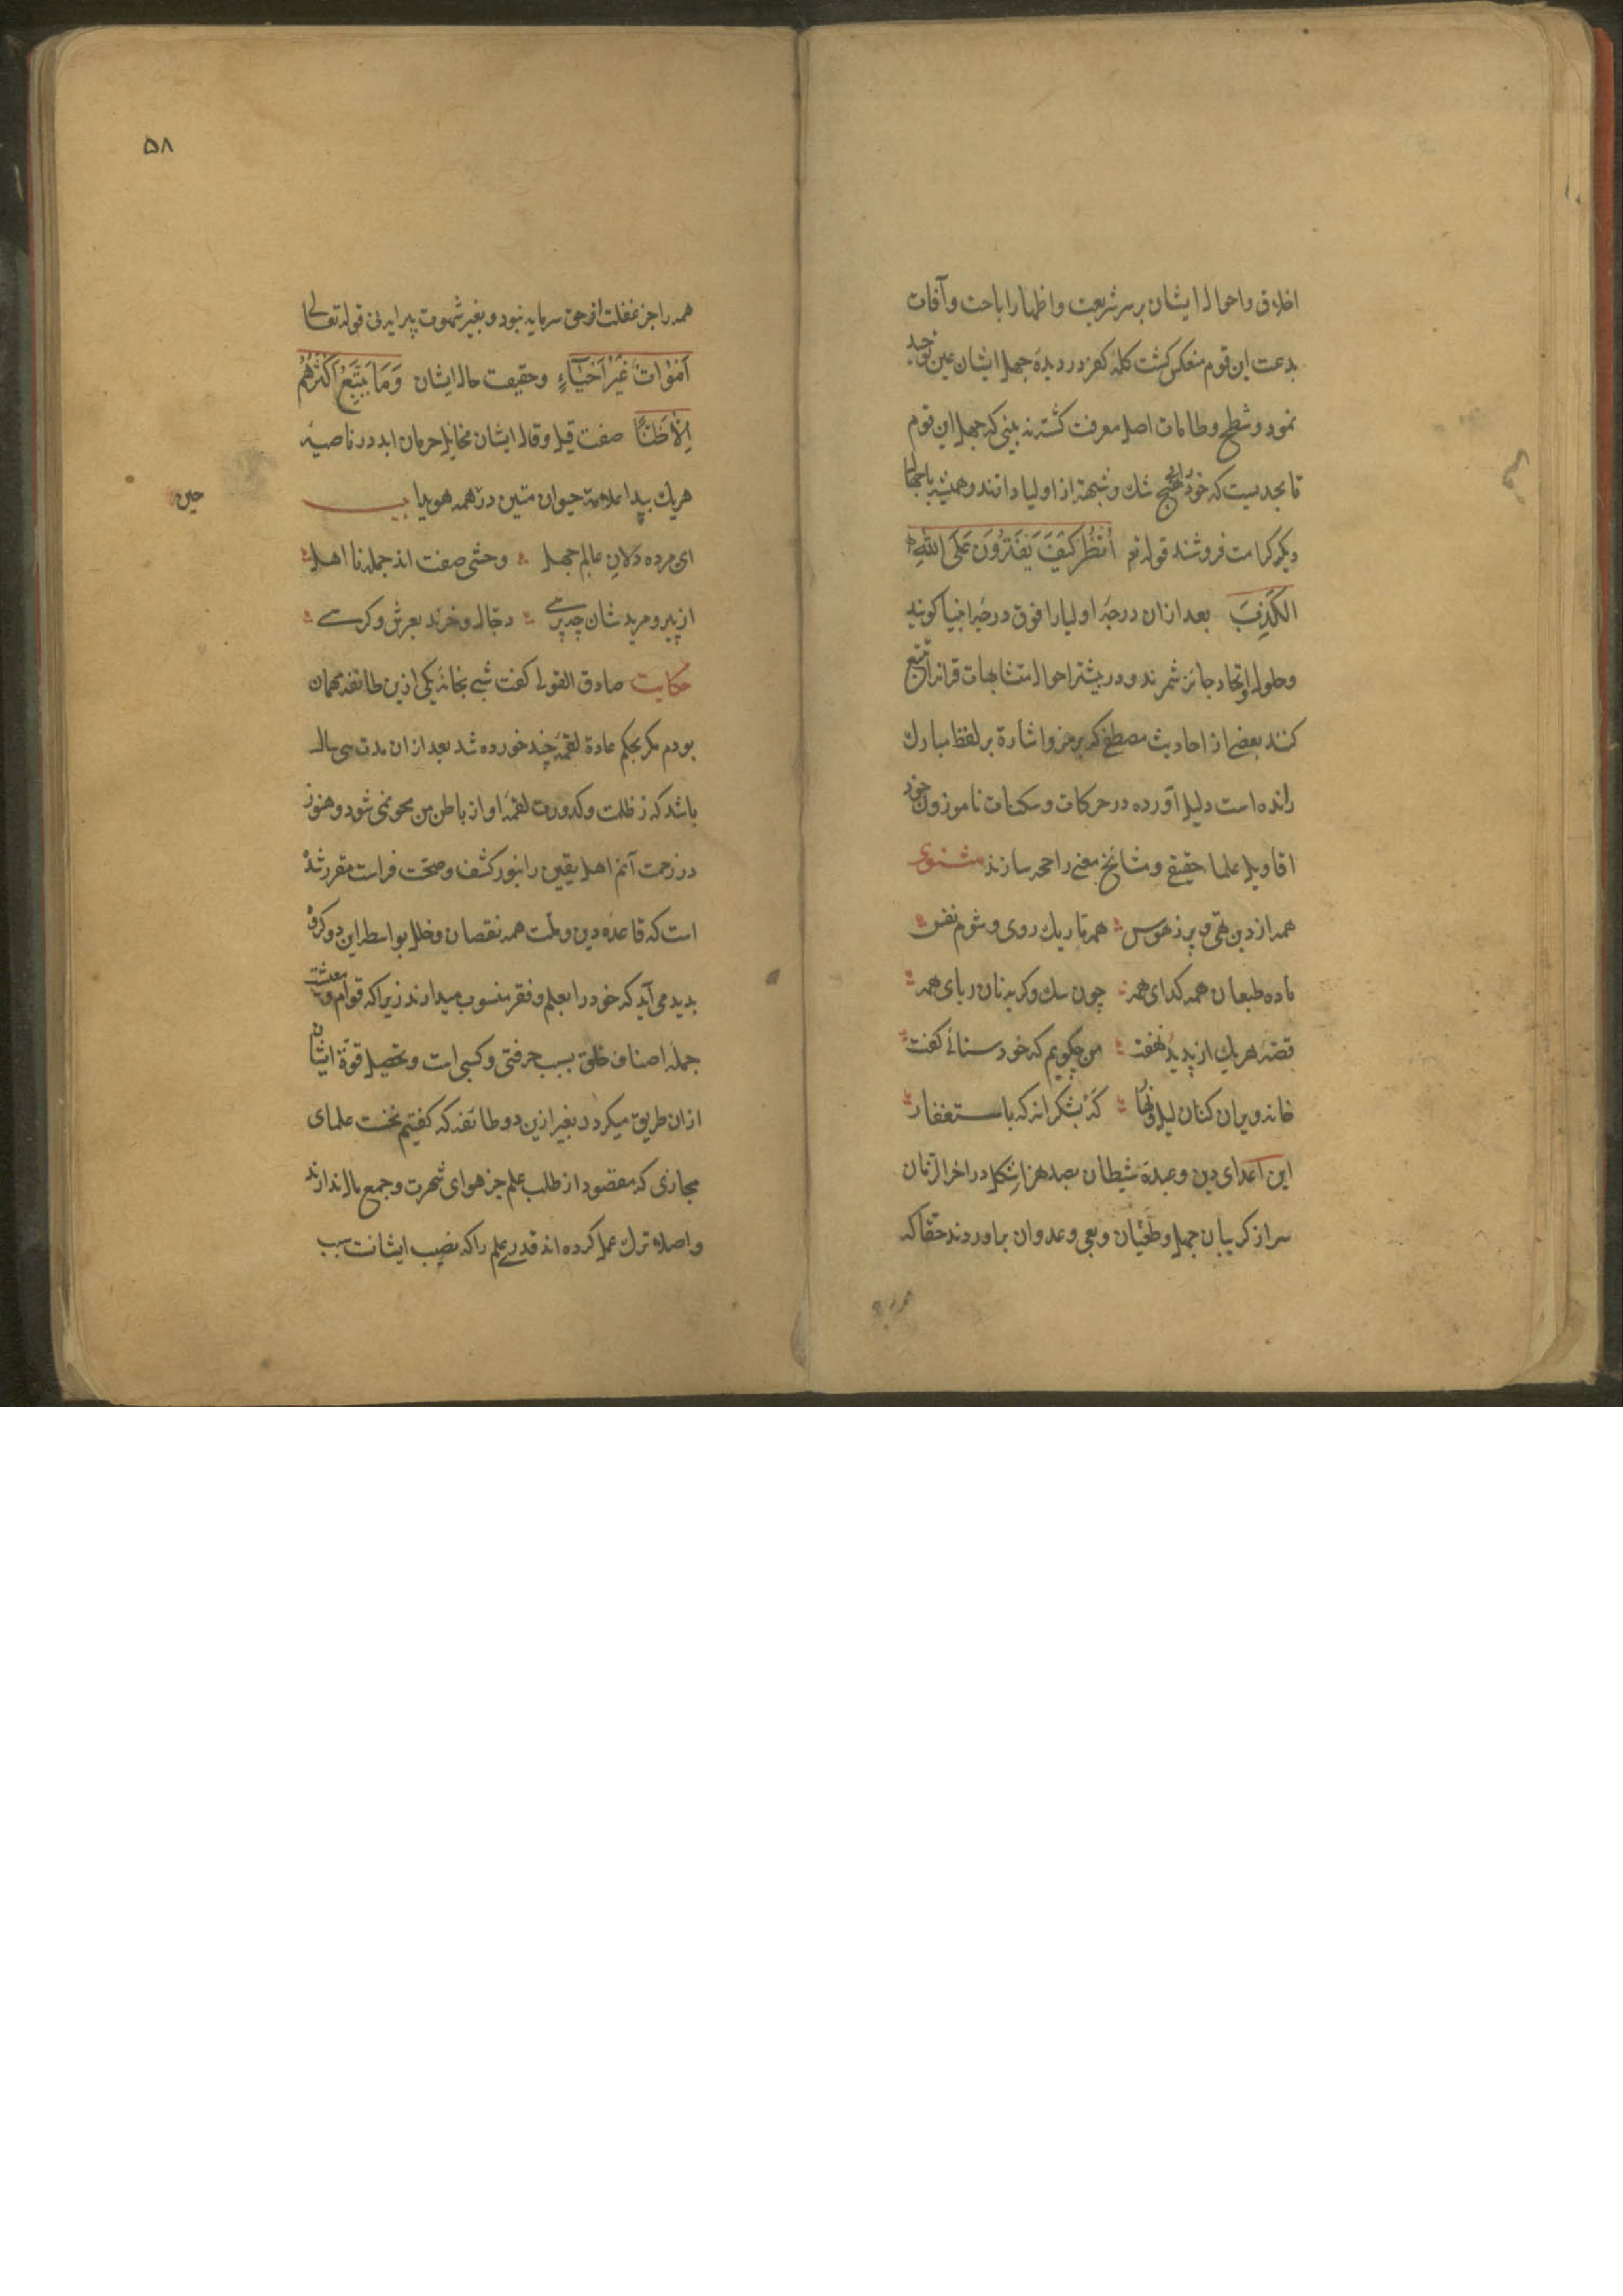 اخلاق و احوال ایشان بر سر شریعت و اظهار اباحت و آفات
بدعت این قوم منعکس کشت کلمهٔ کفر در دیدهٔ جهل ایشان عین توحید
نمود و شطح و طامات اصل معرفت کشته نه بینی که جهل این قوم
تا بحدیست که خود را هیچ شک و شبهة از اولیا دانند و همیشه با جهال
دیکر کرامت فروشند قوله تع أُنْظُر كَيْفَ يَفْتَرُونَ عَلَى اللهِ
الْكَذِبَ بعد ازان درجهٔ اولیا را فوق درجهٔ انبیا کویند
و حلول و اتحاد جائز شمرند و در بیشتر احوال متشابهات قرانرا تتبع
کنند بعضی از احادیث مصطفی که برمز و اشارة بر لفظ مبارک
رانده است دلیل آورده در حرکات و سکنات ناموزون خود
اقاویل علماء حقیقی و مشائخ معنی را حجه سازند مثنوی
همه از دین تهی و پر ز هوس همه تاریک روی و شوم نفس
ماده طبعان همه کدای همه چون سک و کربه نان ربای همه
قصهٔ هر یک از پدید نهفت من چکویم که خود سنائی کفت
خانه ویران کنان لیل و نهار که بشکرانه که باستغفار
این اعدای دین و عبدهٔ شیطان بصد هزار شکل در اخر الزمان
سر از کریبان جهل و طغیان و بغی و عدوان براوردند حقا که
همه را
۵۸
همه را جز غفلت از حق سرمایه نبود و بغیر شهوت پیرایه نی قوله تعالی
اَمْوَاتٌ غَيْرُ اَحْيَآءٍ و حقیقت حال ایشان وَمَا يَتَّبِعُ اَكْثَرُهُمْ
اِلَّا ظَنًّا صفت قیل و قال ایشان مخایل حرمان ابد در ناصیهٔ
هر یک پیدا علامة حیوان متین در همه هویدا بیت
حین
ای مرده دلان عالم جهل وحشی صفت اند جمله نا اهل
از پیر و مرید شان چه پرسی دجال و خرند بعرش و کرسی
حکایت صادق القولی کفت شبی بخانهٔ یکی ازین طائفه مهمان
بودم مکر بحکم عادة لقمهٔ چند خورده شد بعد ازان مدت سی سال
باشد که ز ظلمت و کدورت لقمهٔ او از باطن من محو نمی شود و هنوز
در زحمت آنم اهل یقین را بنور کشف و صحت فراست مقرر شده
است که قاعدهٔ دین و ملت همه نقصان و خلل بواسطهٔ این دو کروه
بدید می آید که خود را بعلم و فقر منسوب میدارند زیرا که قوام و معیشت
جمله اصناف خلق بسبب حرفتی و کسبی است و تحصیل قوة ایشان
ازان طریق میکردد بغیر ازین دو طائفه که کفتیم نخست علمای
مجازی که مقصود از طلب علم جز هوای شهرت و جمع مال ندارند
و اصلا ترک عمل کرده اند قدری علم را که نصیب ایشانست سبب